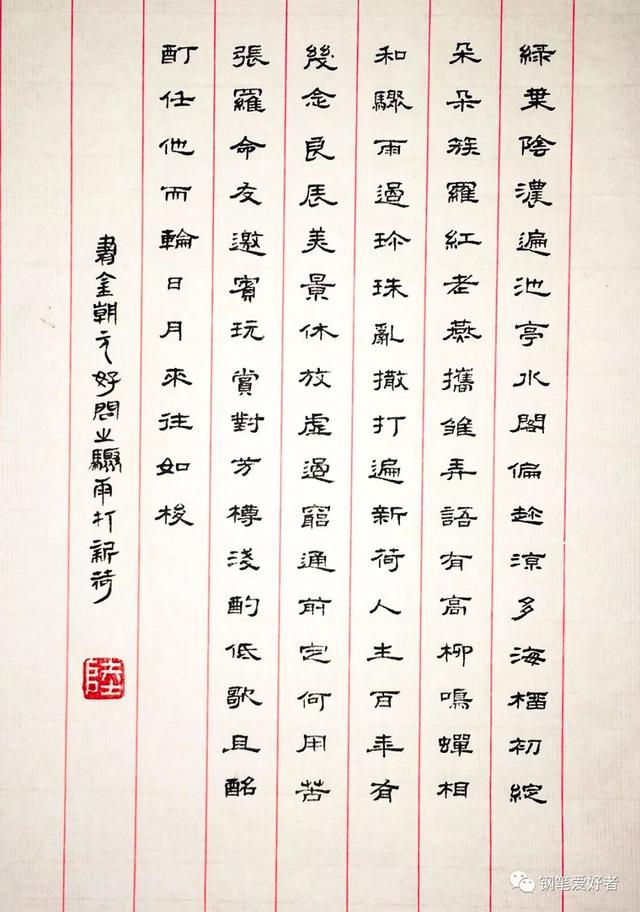 綠葉陰濃遍池亭水閣偏趁涼多海榴初綻
朵朵簇羅紅老燕攜雛弄語有高柳鳴蟬相
和驟雨過珍珠亂撒打遍新荷人生百年有
幾念良辰美景休放虛過窮通前定何用苦
張羅命友邀賓玩賞對芳樽淺酌低歌且酩
酊任他兩輪日月來往如梭
書金朝元好問之驟雨打新荷
陸
钢笔爱好者